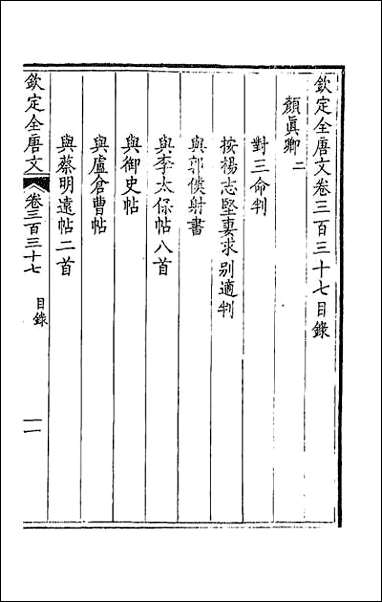 欽定全唐文卷三百三十七目錄
顏眞卿 二
對三命判
按楊志堅妻求别適判
與郭僕射書
與李太保帖八首
與御史帖
與盧倉曹帖
與蔡明遠帖二首
欽定全唐文 卷三百三十七 目錄 一